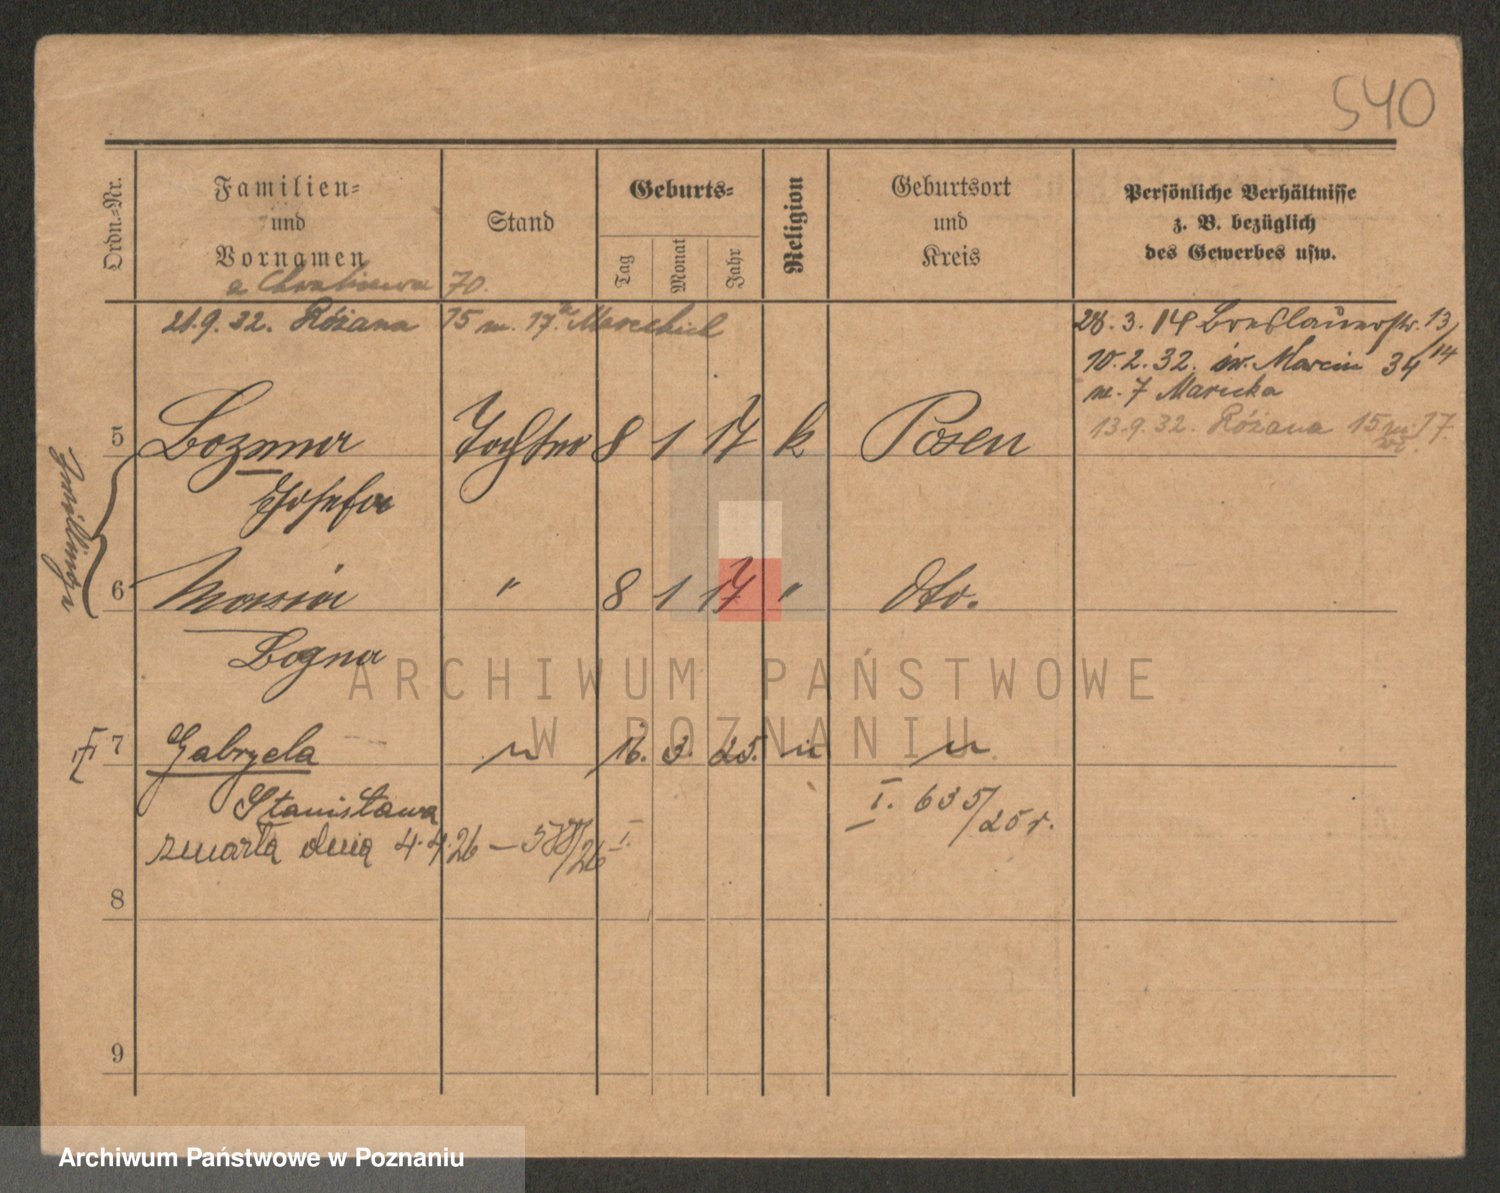 540
Ordn.-Nr.
Familien-
und
Vornamen
Stand
Geburts-
Tag
Monat
Jahr
Religion
Geburtsort
und
Kreis
Persönliche Verhältnisse
z. B. bezüglich
des Gewerbes usw.
70.
21.9.32. Różana 15 m. 17.
28.3.14 Breslauerstr. 13/14
10.2.32. św. Marcin 34
m. 7
13.9.32. Różana 15 m. 17.
Zwillinge
5 Bozena Tochter 8 1 17 k Posen
Josefa
6 Maria " 8 1 17 " dto.
Bogna
7 Gabryela " 16. 3. 25. " "
Stanisława
I. 635/25 r.
zmarła dnia 4.4.26 –
8
9
ARCHIWUM PAŃSTWOWE
W POZNANIU
Archiwum Państwowe w Poznaniu